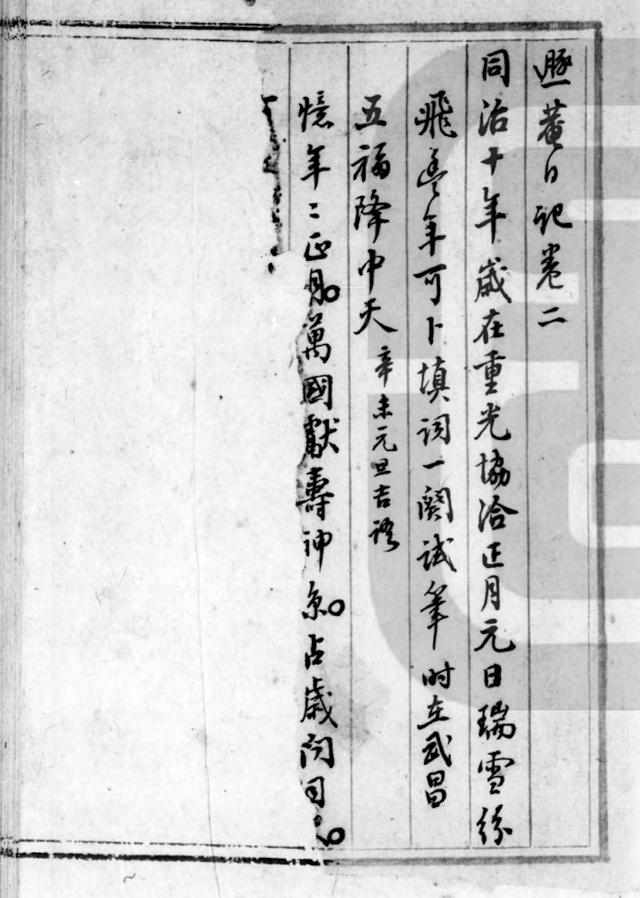 遯菴日記卷二
同治十年歲在重光協洽正月元日瑞雪紛
飛豐年可卜填詞一闋試筆時在武昌
五福降中天辛未元旦吉語
憶年〻正月。萬國獻壽神京。占歲問同。